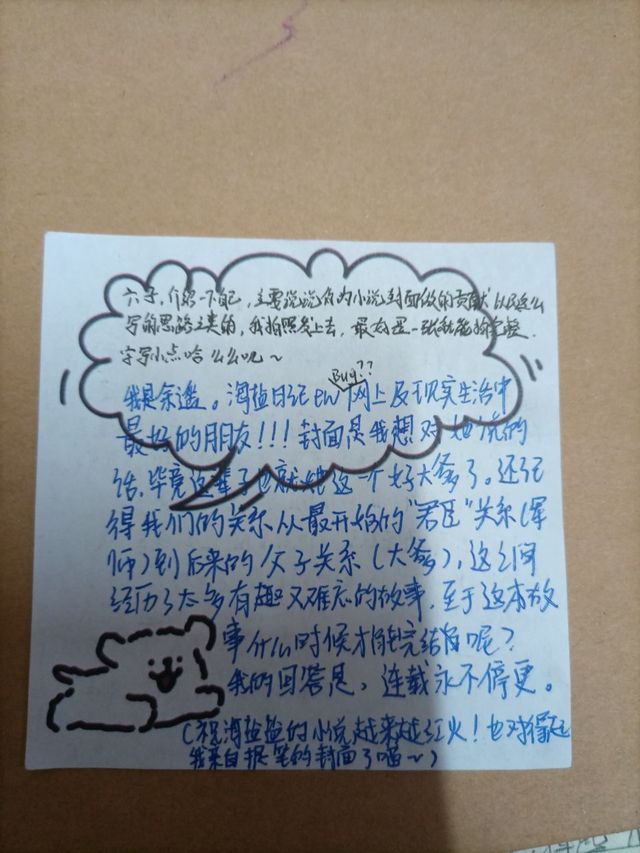 六子，介绍一下自己，主要说说你为小说封面做的贡献以及这么
写的思路之类的，我拍照发上去，最好是一张就能拍完整，
字写小点哈 么么呢～
我是余遥。海盐日记en网上及现实生活中
Bug??
最好的朋友！！！封面是我想对她说的
话，毕竟这辈子也就她这一个好大爹了。还记
得我们的关系从最开始的“君臣”关系（军
师）到后来的父子关系（大爹），这之间
经历了太多有趣又难忘的故事，至于这本故
事什么时候才能完结的呢？
我的回答是，连载永不停更。
（祝海盐盐的小说越来越红火！也对得起
我亲自提笔的封面了喵～）